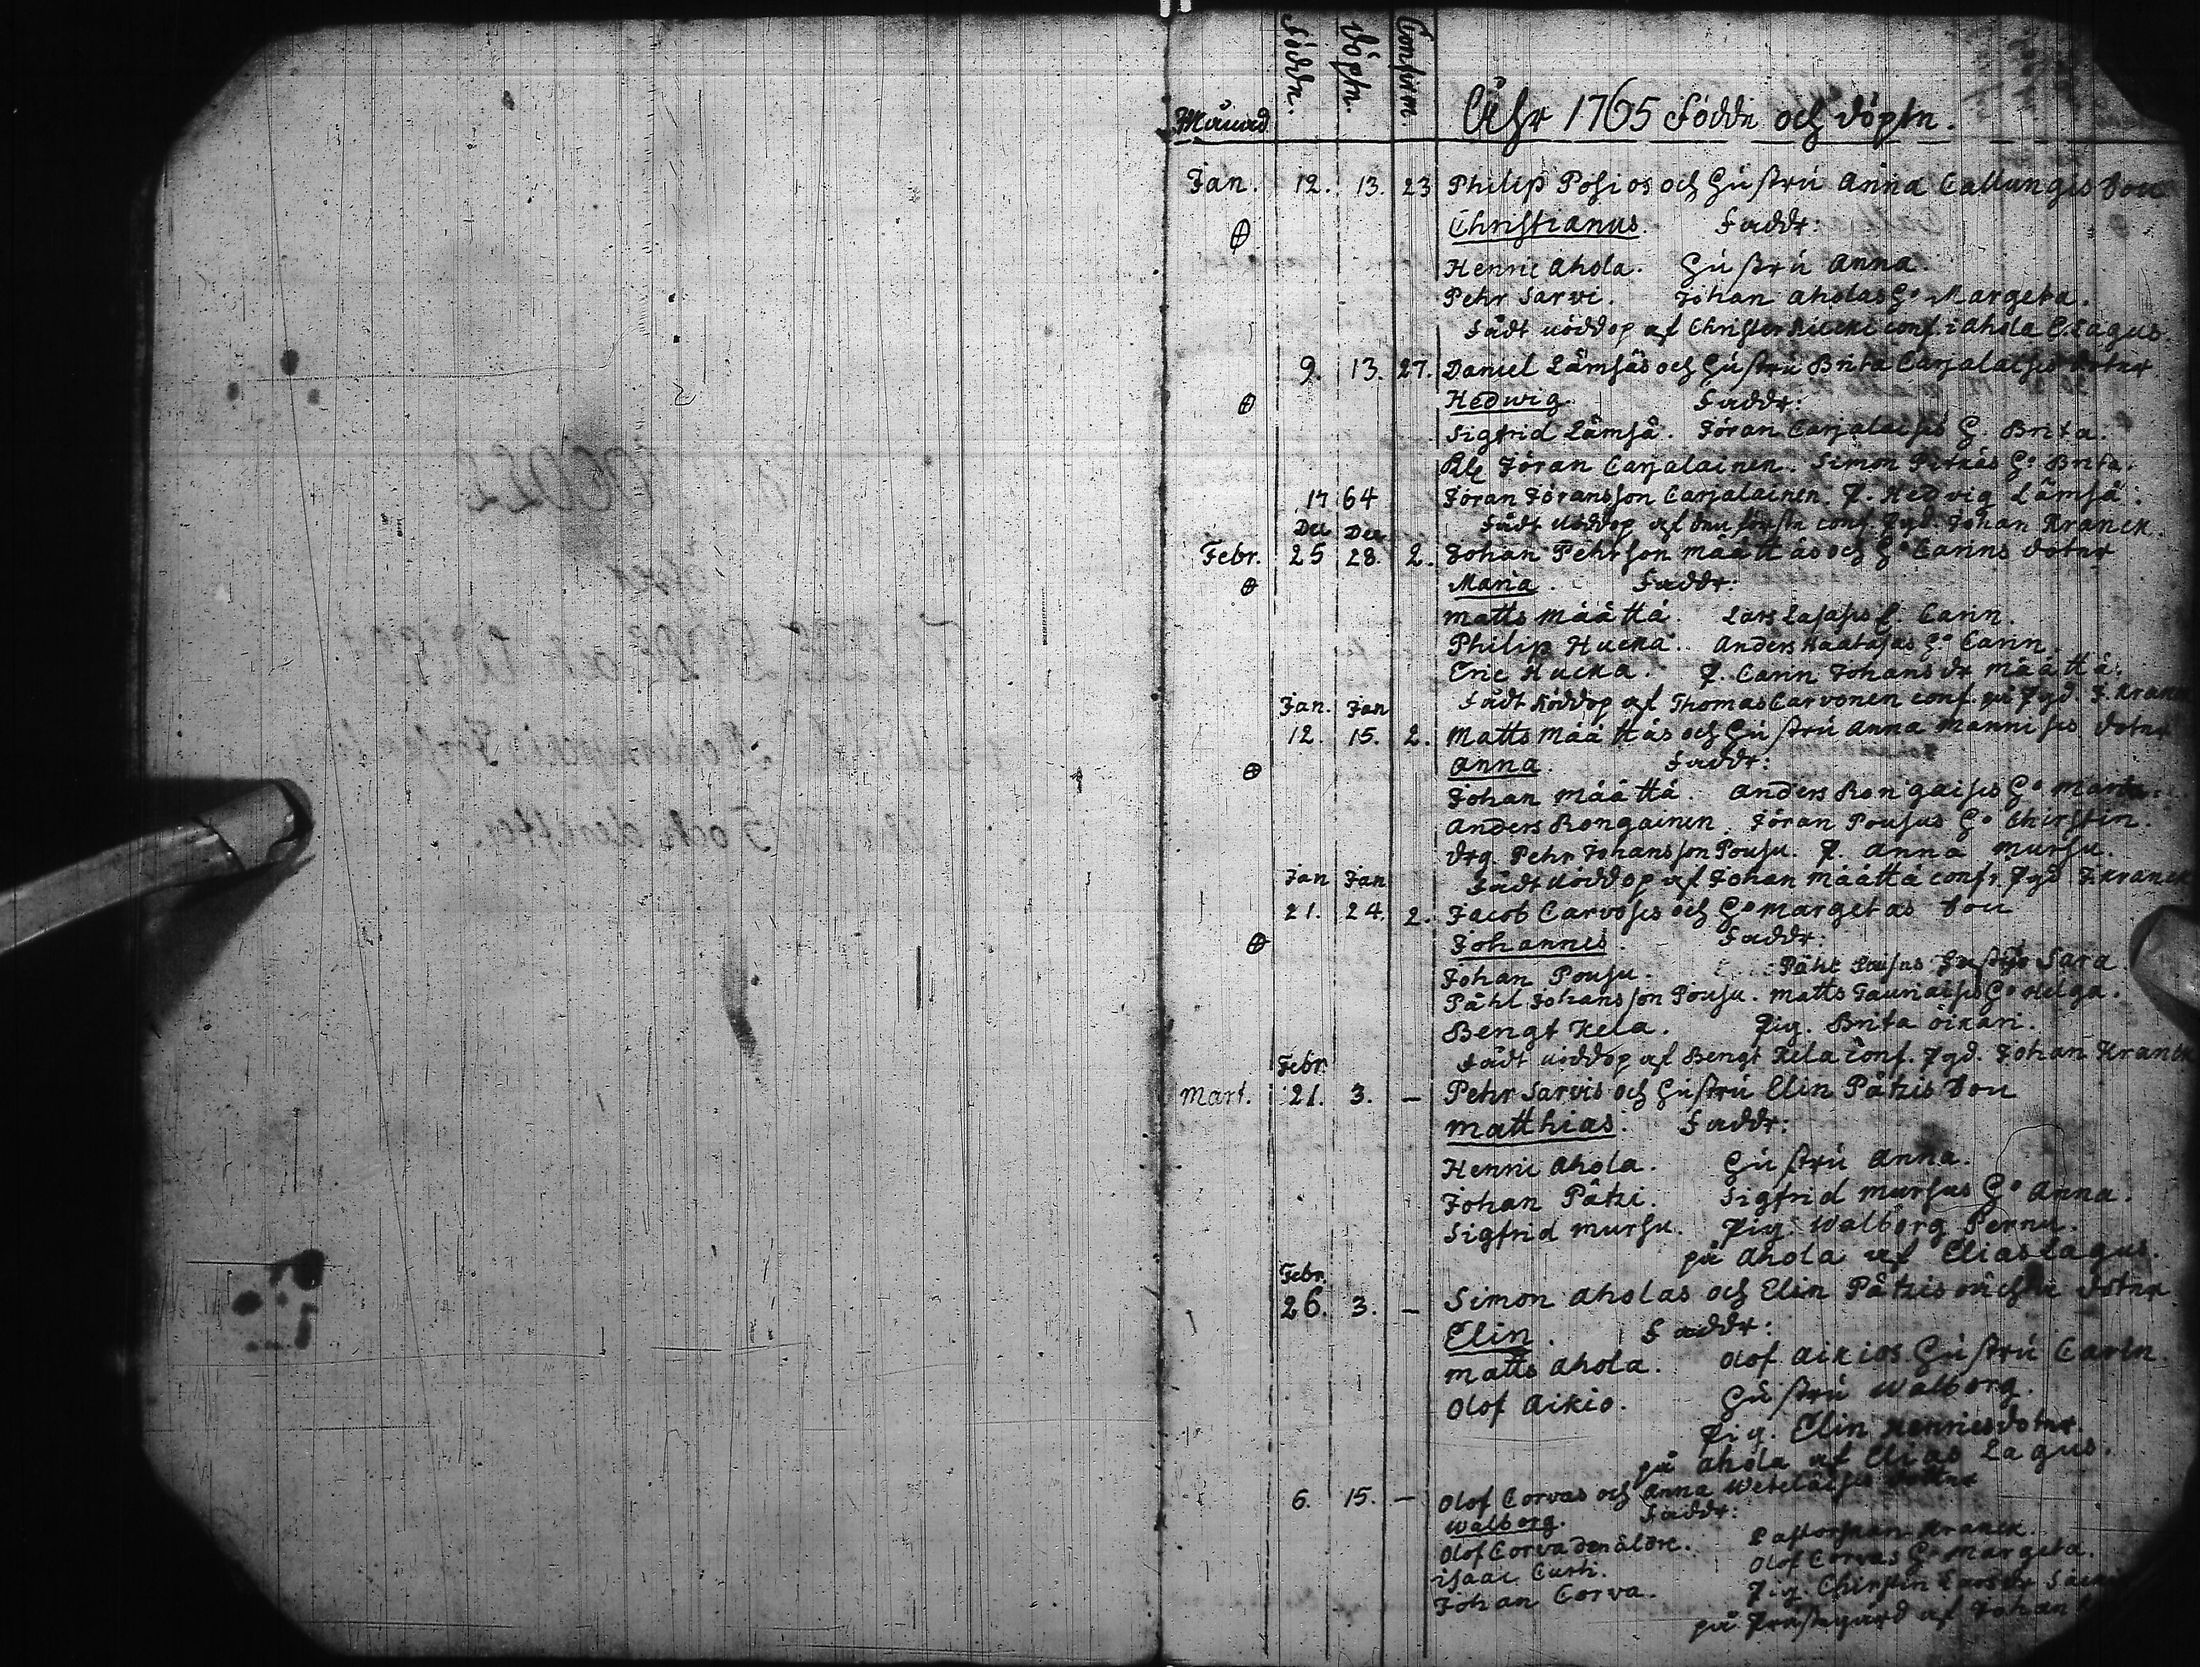 Månad Födde. döpte. Confirm. Åhr 1765 födde och döpte.
Jan. 12. 13. 23 Philip Posios och Hustru Anna Callungis son
Christianus. Faddr:
Henric Ahola. Hustru Anna.
Pehr Sarvi. Johan Aholas H:o Margeta.
Fådt nöddop af Christer conf. i Ahola E. Lagus.
9. 13. 27. Daniel Lämsäs och Hustru Brita Carjalaises doter
Hedwig. Faddr:
Sigfrid Lämsä. Jöran Carjalaises H. Brita.
Jöran Carjalainen. Simon Pitkäs H:o Brita.
17 64 Jöran Jöransson Carjalainen. P. Hedvig Lämsä.
Dec Dec. Fådt nöddop af conf. Pgd. Johan Kranck.
Febr. 25 28. 2. Johan Pehrson Määttäs och H:o Carins doter
Maria. Faddr:
Matts Määttä. Lars H. Carin.
Philip Hucka. Anders Haatajas H:o Carin.
Eric Hucka. P. Carin Johans dr Määttä.
Jan. Jan Fådt nöddop af Thomas Carvonen conf. på Pgd J. Kranck
12. 15. 2. Matts Määttäs och Hustru Anna Mannises doter
Anna. Faddr:
Johan Määttä. Anders Rongaises H:o
Anders Rongainen. Jöran Pousus H:o Chirstin.
drg. Pehr Johansson Pousu. P. Anna Mursu.
Jan Jan Fådt nöddop af Johan Määttä conf. Pgd J. Kranck
21. 24. 2. Jacob Carvoses och H:o Margetas son
Johannes. Faddr:
Johan Pousu. Påhl Pousus Hustru Sara.
Påhl Johansson Pousu. Matts Tauriaises H:o Helga.
Bengt Kela. Pig. Brita Oikari.
Febr. Fådt nöddop af Bengt Kela conf. Pgd. Johan Kranck
Mart. 21. 3. – Pehr Sarvis och Hustru Elin Pätzis son
Matthias. Faddr:
Henric Ahola. Hustru Anna.
Johan Pätzi. Sigfrid Mursus H:o Anna.
Sigfrid Mursu. Pig. Walborg Pernu.
på Ahola af Elias Lagus.
Febr.
26. 3. – Simon Aholas och Elin Pätzis doter
Elin. Faddr:
Matts Ahola. Olof Aikios Hustru Carin
Olof Aikio. Hustru Walborg.
Pig. Elin Henricsdoter
på Ahola af Elias Lagus.
6. 15. – Olof Corvas och Anna doter
Walborg. Faddr:
Olof Corva den äldre. Pastorskan Kranck.
Isaac Curti. Olof Corvas H:o Margeta.
Johan Corva. Pig. Chirstin
på Prästegård af Johan